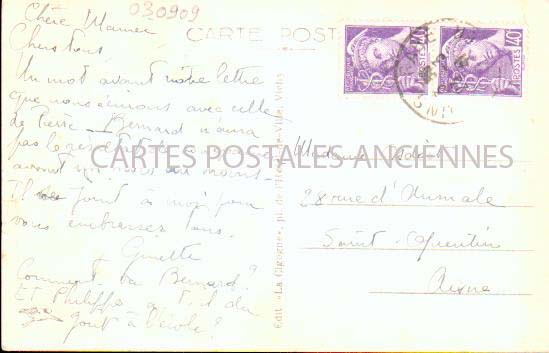 030909
CARTE POSTALE
Chère Maman
Chers tous,
Un mot avant notre lettre
que nous écrivons avec celle
de Pierre. Bernard n'aura
pas
avant
Il se joint à moi pour
vous embrasser tous.
Ginette
Comment va Bernard?
Et Philippe a-t-il du
goût à l'école?
CARTES POSTALES ANCIENNES
Edit. «La Cigogne», pl. de l'Hôtel-de-Ville, Vichy
POSTES 40
POSTES 40
Madame
28 rue d'Aumale
Saint-Quentin
Aisne